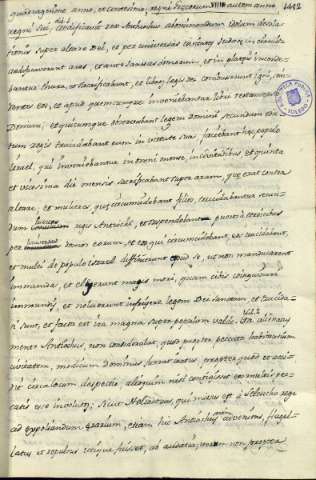 1442
quadragesimo anno, et centesimo, regni Graecorum VIII autem anno
regni sui, aedificavit rex Antiochus abominandum idolum desola-
tionis supra altare Dei, et per universas civitates Iudae in circuitu
aedificaverunt aras, et ante januas domorum, et in plateis incende-
bantur thura, et sacrificabant, et libros legis Dei combusserunt igni, scin-
dentes eos, et apud quemcumque inveniebantur libri testamenti
Domini, et quicumque observabant legem Domini secundum edic-
tum regis trucidabant eum in virtute sua, faciebant haec populo
Israel, qui inveniebantur in omni mense, in civitatibus, et quinta
et vicesima die mensis sacrificabant supra aram, quae erat contra
altare, et mulieres, quae circumcidebant filios, trucidabantur secun-
dum jussum regis Antiochi, et suspendebant pueros a cervicibus
per domos earum, et eos qui circumcidebant, eos trucidabant,
et multi de populo Israel definierunt apud se, ut non manducarent
immunda, et elegerunt magis mori, quam cibis coinquinari
immundis, et noluerunt infringere legem Dei sanctam et trucida-
ti sunt, et facta est ira magna super populum valde. Ita alienatus
mente Antiochus, non considerabat, quod propter peccata habitantium
civitatem, modicum Dominus fuerat iratus, propter quod et acci-
dit circa locum despectio, alioquin nisi contigisset eos multis pec-
catis esse involutos, sicut Heliodorus, qui missus est a Seleucho rege
ad expoliandum aerarium, etiam hic Antiochus adveniens, flagel-
latus et repulsus utique fuisset, ab audatia, verum non propter